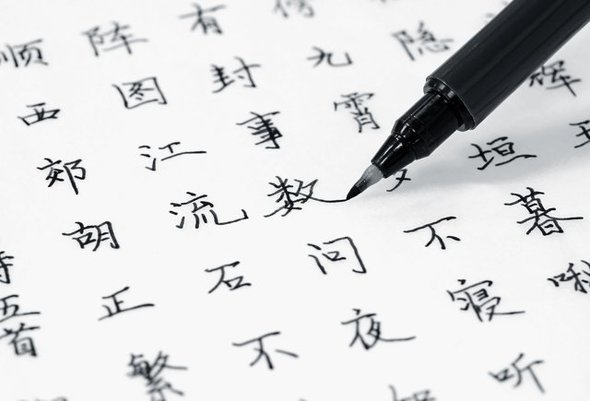 顺 阵 有
西 图 封 九 隐
郊 江 事 霄 辉
胡 流 数 垣
五首 正 石 问 不 暮
繁 不 夜 寝 啾
听